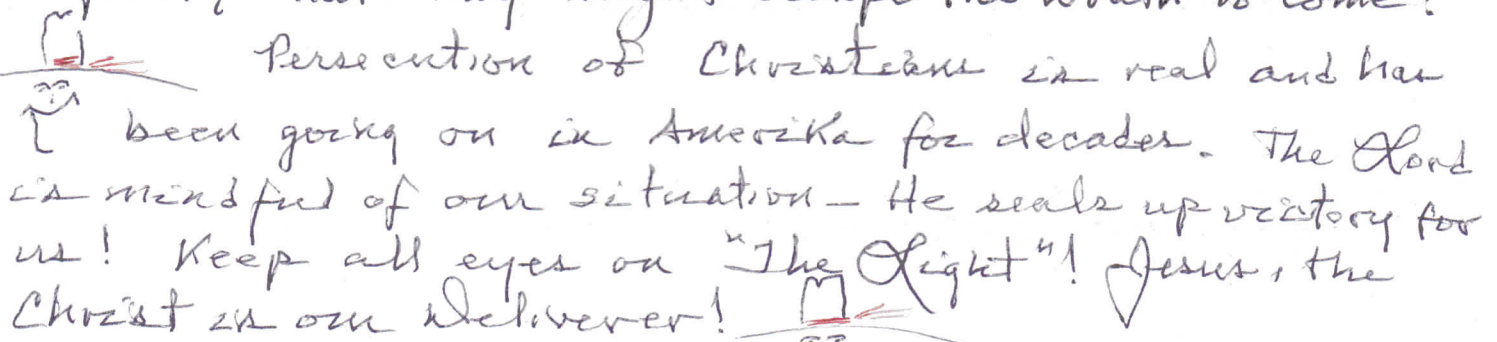 that they might escape the wrath to come!
Persecution of Christians is real and has
been going on in Amerika for decades. The Lord
is mindful of our situation – He seals up victory for
us! Keep all eyes on "The Light"! Jesus, the
Christ is our Deliverer!